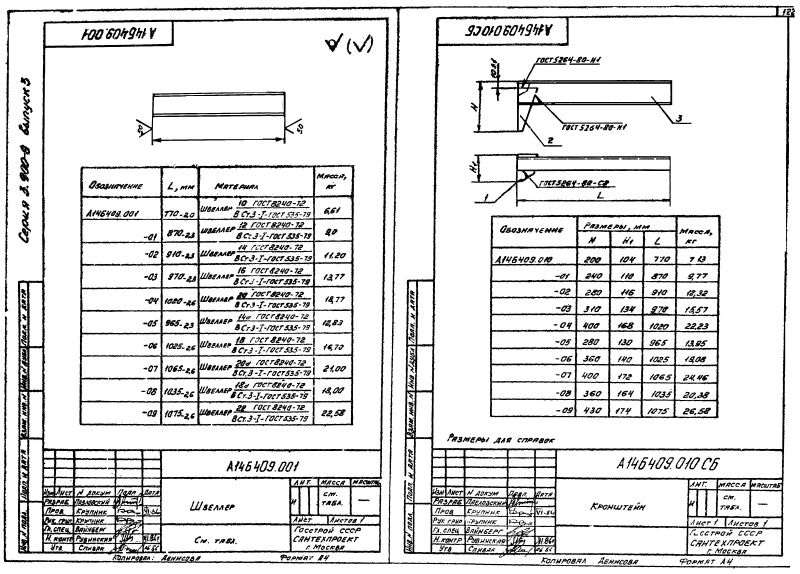 122
А14Б409.001
Серия 3.900-9 выпуск 5
50 50
Обозначение L, мм Материал Масса, кг
А14Б409.001 770-2,0 Швеллер 10 ГОСТ 8240-72 / В Ст.3-I-ГОСТ 535-79 6,61
-01 870-2,3 Швеллер 12 ГОСТ 8240-72 / В Ст.3-I-ГОСТ 535-79 9,0
-02 910-2,3 Швеллер 14 ГОСТ 8240-72 / В Ст.3-I-ГОСТ 535-79 11,20
-03 970-2,3 Швеллер 16 ГОСТ 8240-72 / В Ст.3-I-ГОСТ 535-79 13,77
-04 1020-2,6 Швеллер 20 ГОСТ 8240-72 / В Ст.3-I-ГОСТ 535-79 18,77
-05 965-2,3 Швеллер 14а ГОСТ 8240-72 / В Ст.3-I-ГОСТ 535-79 12,83
-06 1025-2,6 Швеллер 18 ГОСТ 8240-72 / В Ст.3-I-ГОСТ 535-79 16,70
-07 1065-2,6 Швеллер 20а ГОСТ 8240-72 / В Ст.3-I-ГОСТ 535-79 21,00
-08 1035-2,6 Швеллер 18а ГОСТ 8240-72 / В Ст.3-I-ГОСТ 535-79 18,00
-09 1075-2,6 Швеллер 22 ГОСТ 8240-72 / В Ст.3-I-ГОСТ 535-79 22,58
А14Б409.001
Лит. Масса Масштаб
Изм Лист N докум Подп Дата
Разраб Павловский
Пров Крупник
Рук. груп Крупник
Гл. спец Вайнберг
Н. контр Рувинский
Утв Спивак
Швеллер
См. табл.
И см. табл. —
Лист Листов 1
Госстрой СССР
Сантехпроект
г. Москва
Копировал Денисова Формат А4
Инв. N подл. Подп. и дата Взам. инв. N Подп. и дата
А14Б409.010СБ
ГОСТ 5264-80-Н1
H
ГОСТ 5264-80-Н1
3
2
H1
1
ГОСТ 5264-80-С2
L
Обозначение Размеры, мм Масса, кг
H H1 L
А14Б409.010 200 104 770 7,13
-01 240 110 870 9,77
-02 280 116 910 12,32
-03 310 134 970 15,57
-04 400 168 1020 22,23
-05 280 130 965 13,95
-06 360 140 1025 19,08
-07 400 172 1065 24,46
-08 360 164 1035 20,38
-09 430 174 1075 26,58
Размеры для справок
А14Б409.010 СБ
Лит. Масса Масштаб
Изм Лист N докум Подп Дата
Разраб Павловский
Пров Крупник
Рук груп Крупник
Гл. спец Вайнберг
Н. контр Рувинский
Утв Спивак
Кронштейн
И см. табл. —
Лист 1 Листов 1
Госстрой СССР
Сантехпроект
г. Москва
Копировал Денисова Формат А4